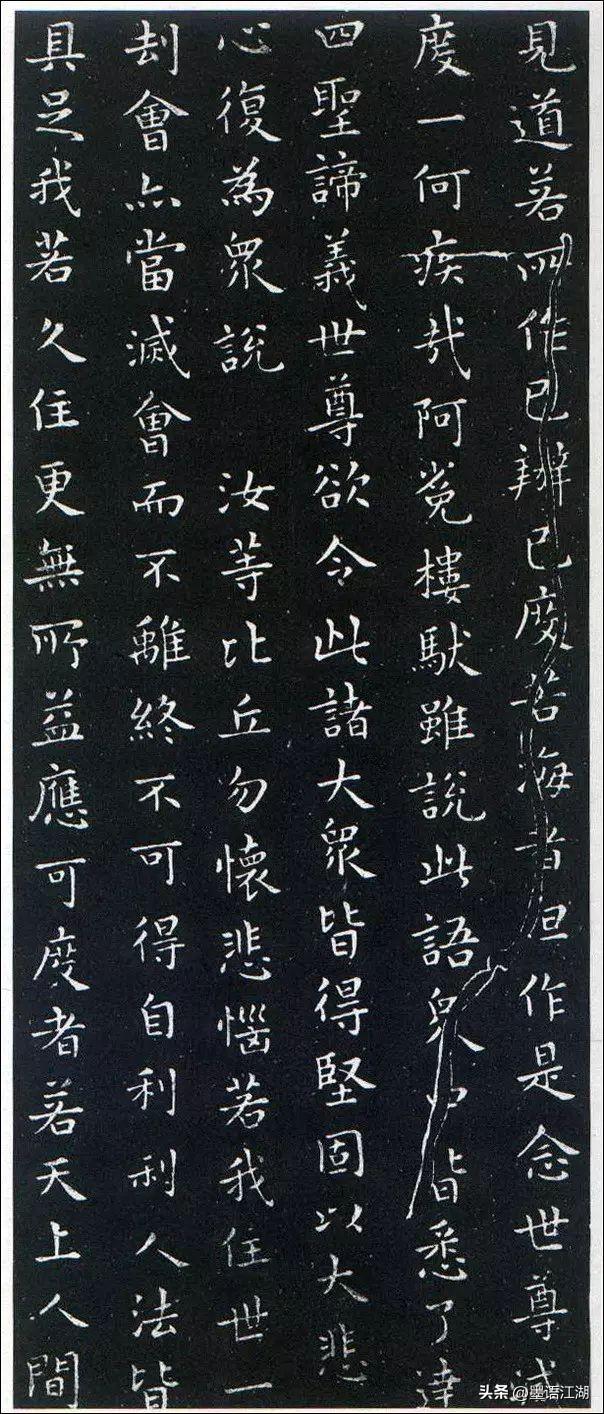 見道若所作已辦已度苦海者但作是念世尊滅
度一何疾哉阿㝹樓馱雖說此語眾中皆悉了達
四聖諦義世尊欲令此諸大眾皆得堅固以大悲
心復為眾說　汝等比丘勿懷悲惱若我住世一
劫會亦當滅會而不離終不可得自利利人法皆
具足我若久住更無所益應可度者若天上人間
头条 @墨语江湖